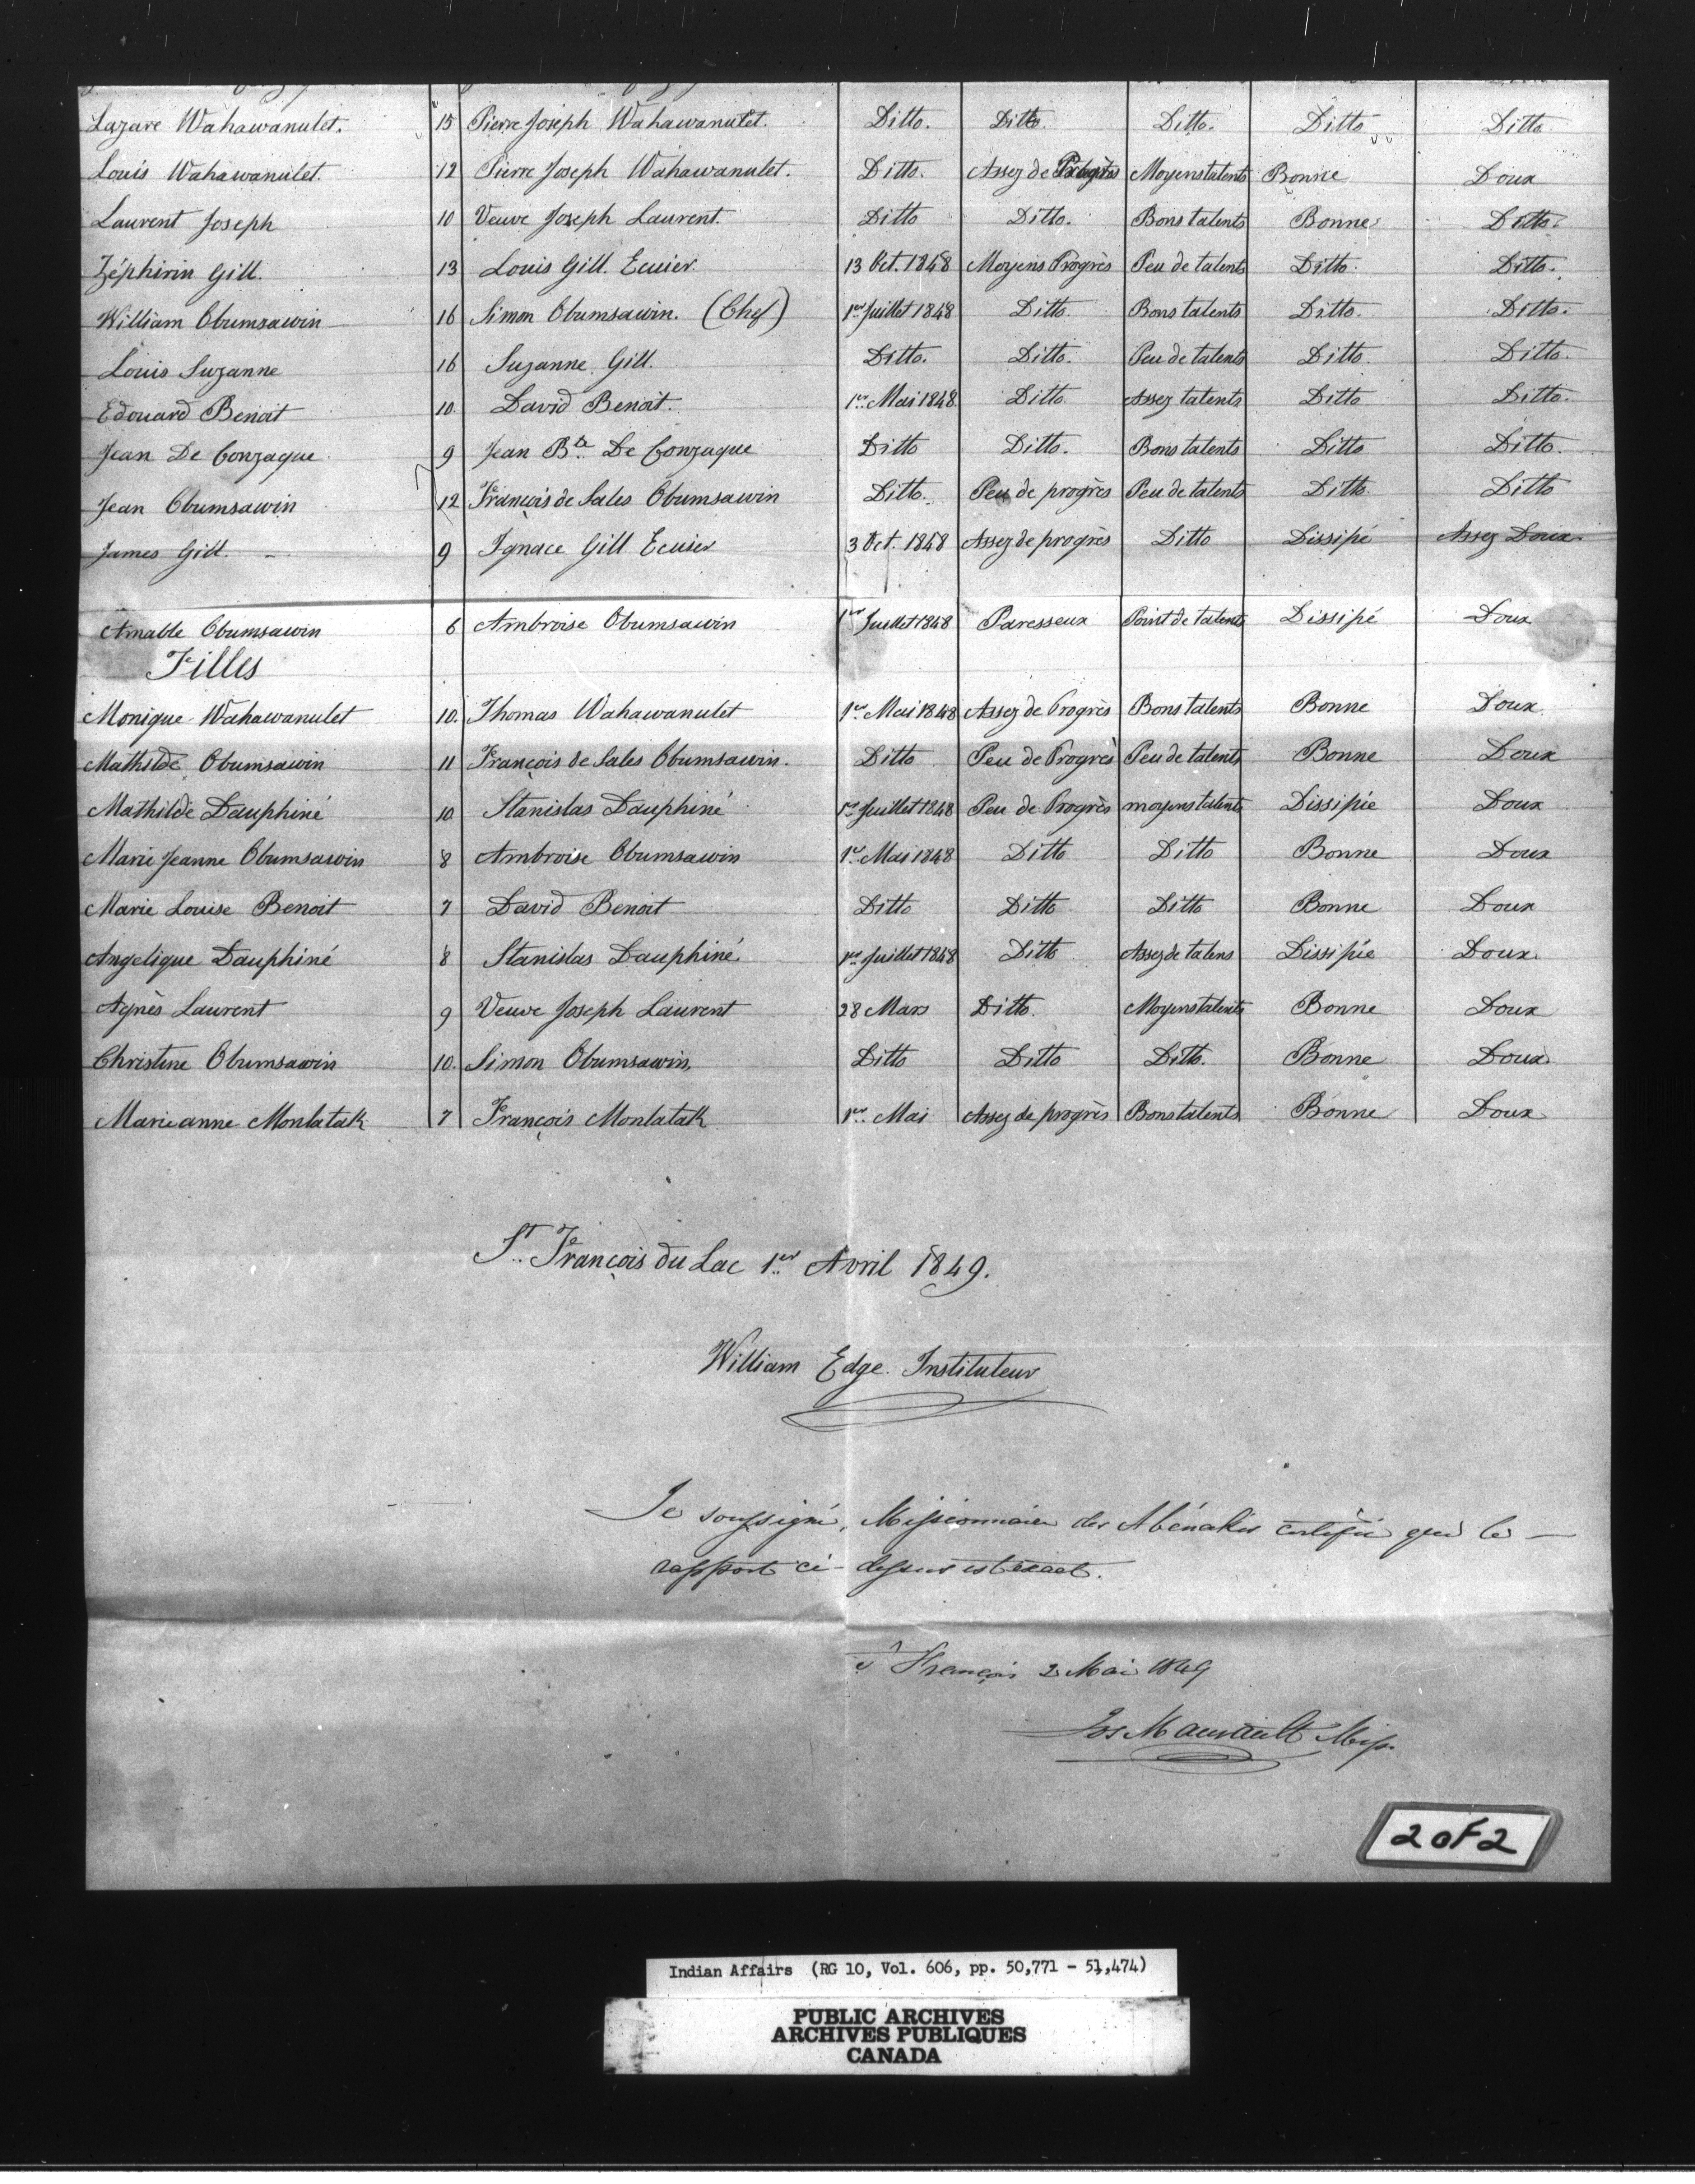 Lazare Wahawanulet. 15 Pierre Joseph Wahawanulet. Ditto. Ditto. Ditto. Ditto Ditto
Louis Wahawanulet. 12 Pierre Joseph Wahawanulet. Ditto. Assez de Progrès Moyens talents Bonne Doux
Laurent Joseph 10 Veuve Joseph Laurent. Ditto Ditto. Bons talents Bonne Ditto.
Zéphirin Gill. 13 Louis Gill. Ecuier. 13 Oct. 1848 Moyens Progrès Peu de talents Ditto Ditto.
William Obumsawin 16 Simon Obumsawin. (Chef) 1er Juillet 1848 Ditto. Bons talents Ditto. Ditto.
Louis Suzanne 16 Suzanne Gill. Ditto. Ditto. Peu de talents Ditto. Ditto.
Edouard Benoit 10. David Benoit. 1er Mai 1848 Ditto Assez talents Ditto Ditto.
Jean De Gonzague 9 Jean Bte De Gonzague Ditto Ditto. Bons talents Ditto Ditto.
Jean Obumsawin 12 François de Sales Obumsawin Ditto. Peu de progrès Peu de talents Ditto Ditto
James Gill. 9 Ignace Gill Ecuier 3 Oct. 1848 Assez de progrès Ditto Dissipé Assez Doux.
Amable Obumsawin 6 Ambroise Obumsawin 1er Juillet 1848 Paresseux Point de talents Dissipé Doux
Filles
Monique Wahawanulet 10. Thomas Wahawanulet 1er Mai 1848 Assez de Progrès Bons talents Bonne Doux
Mathilde Obumsawin 11 François de Sales Obumsawin. Ditto Peu de Progrès Peu de talents Bonne Doux
Mathilde Dauphiné 10 Stanislas Dauphiné 1er Juillet 1848 Peu de Progrès moyens talents Dissipée Doux
Marie Jeanne Obumsawin 8 Ambroise Obumsawin 1er Mai 1848 Ditto Ditto Bonne Doux
Marie Louise Benoit 7 David Benoit Ditto Ditto Ditto Bonne Doux
Angelique Dauphiné 8 Stanislas Dauphiné 1er Juillet 1848 Ditto Assez de talens Dissipée Doux.
Agnès Laurent 9 Veuve Joseph Laurent 28 Mars Ditto. Moyens talents Bonne Doux
Christine Obumsawin 10. Simon Obumsawin. Ditto Ditto Ditto. Bonne Doux
Marie anne Monlatak 7 François Monlatak 1er Mai Assez de progrès Bons talents Bonne Doux
St François du Lac 1er Avril 1849.
William Edge. Instituteur
Je soussigné, Missionnaire des Abénakis certifie que le
rapport ci-dessus est exact.
St François 2 Mai 1849
Jos Maurault Miss.
2 of 2
Indian Affairs (RG 10, Vol. 606, pp. 50,771 - 51,474)
PUBLIC ARCHIVES
ARCHIVES PUBLIQUES
CANADA